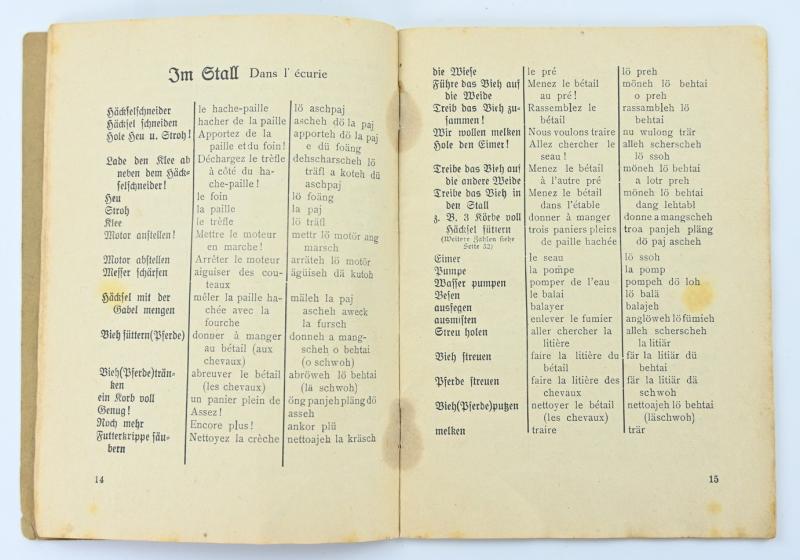 Im Stall Dans l' écurie
Häckselschneider le hache-paille lö aschpaj
Häcksel schneiden hacher de la paille ascheh dö la paj
Hole Heu u. Stroh! Apportez de la apporteh dö la paj
paille et du foin! e dü foäng
Lade den Klee ab Déchargez le trèfle dehscharscheh lö
neben dem Häck- à côté du ha- träfl a koteh dü
selschneider! che-paille! aschpaj
Heu le foin lö foäng
Stroh la paille la paj
Klee le trèfle lö träfl
Motor anstellen! Mettre le moteur mettr lö motör ang
en marche! marsch
Motor abstellen Arrêter le moteur arräteh lö motör
Messer schärfen aiguiser des cou- ägüiseh dä kutoh
teaux
Häcksel mit der mêler la paille ha- mäleh la paj
Gabel mengen chée avec la ascheh aweck
fourche la fursch
Vieh füttern(Pferde) donner à manger donneh a mang-
au bétail (aux scheh o behtai
chevaux) (o schwoh)
Vieh(Pferde)trän- abreuver le bétail abröweh lö behtai
ken (les chevaux) (lä schwoh)
ein Korb voll un panier plein de öng panjeh pläng dö
Genug! Assez! asseh
Noch mehr Encore plus! ankor plü
Futterkrippe säu- Nettoyez la crèche nettoajeh la kräsch
bern
14
die Wiese le pré lö preh
Führe das Vieh auf Menez le bétail möneh lö behtai
die Weide au pré! o preh
Treib das Vieh zu- Rassemblez le rassambleh lö
sammen! bétail behtai
Wir wollen melken Nous voulons traire nu wulong trär
Hole den Eimer! Allez chercher le alleh scherscheh
seau! lö ssoh
Treibe das Vieh auf Menez le bétail möneh lö behtai
die andere Weide à l'autre pré a lotr preh
Treibe das Vieh in Menez le bétail möneh lö behtai
den Stall dans l'étable dang lehtabl
z. B. 3 Körbe voll donner à manger donne a mangscheh
Häcksel füttern trois paniers pleins troa panjeh pläng
(Weitere Zahlen siehe de paille hachée dö paj ascheh
Seite 52)
Eimer le seau lö ssoh
Pumpe la pompe la pomp
Wasser pumpen pomper de l'eau pompeh dö loh
Besen le balai lö balä
ausfegen balayer balajeh
ausmisten enlever le fumier anglöweh lö fümieh
Streu holen aller chercher la alleh scherscheh
litière la litiär
Vieh streuen faire la litière du fär la litiär dü
bétail behtai
Pferde streuen faire la litière des fär la litiär dä
chevaux schwoh
Vieh(Pferde)putzen nettoyer le bétail nettoajeh lö behtai
(les chevaux) (läschwoh)
melken traire trär
15